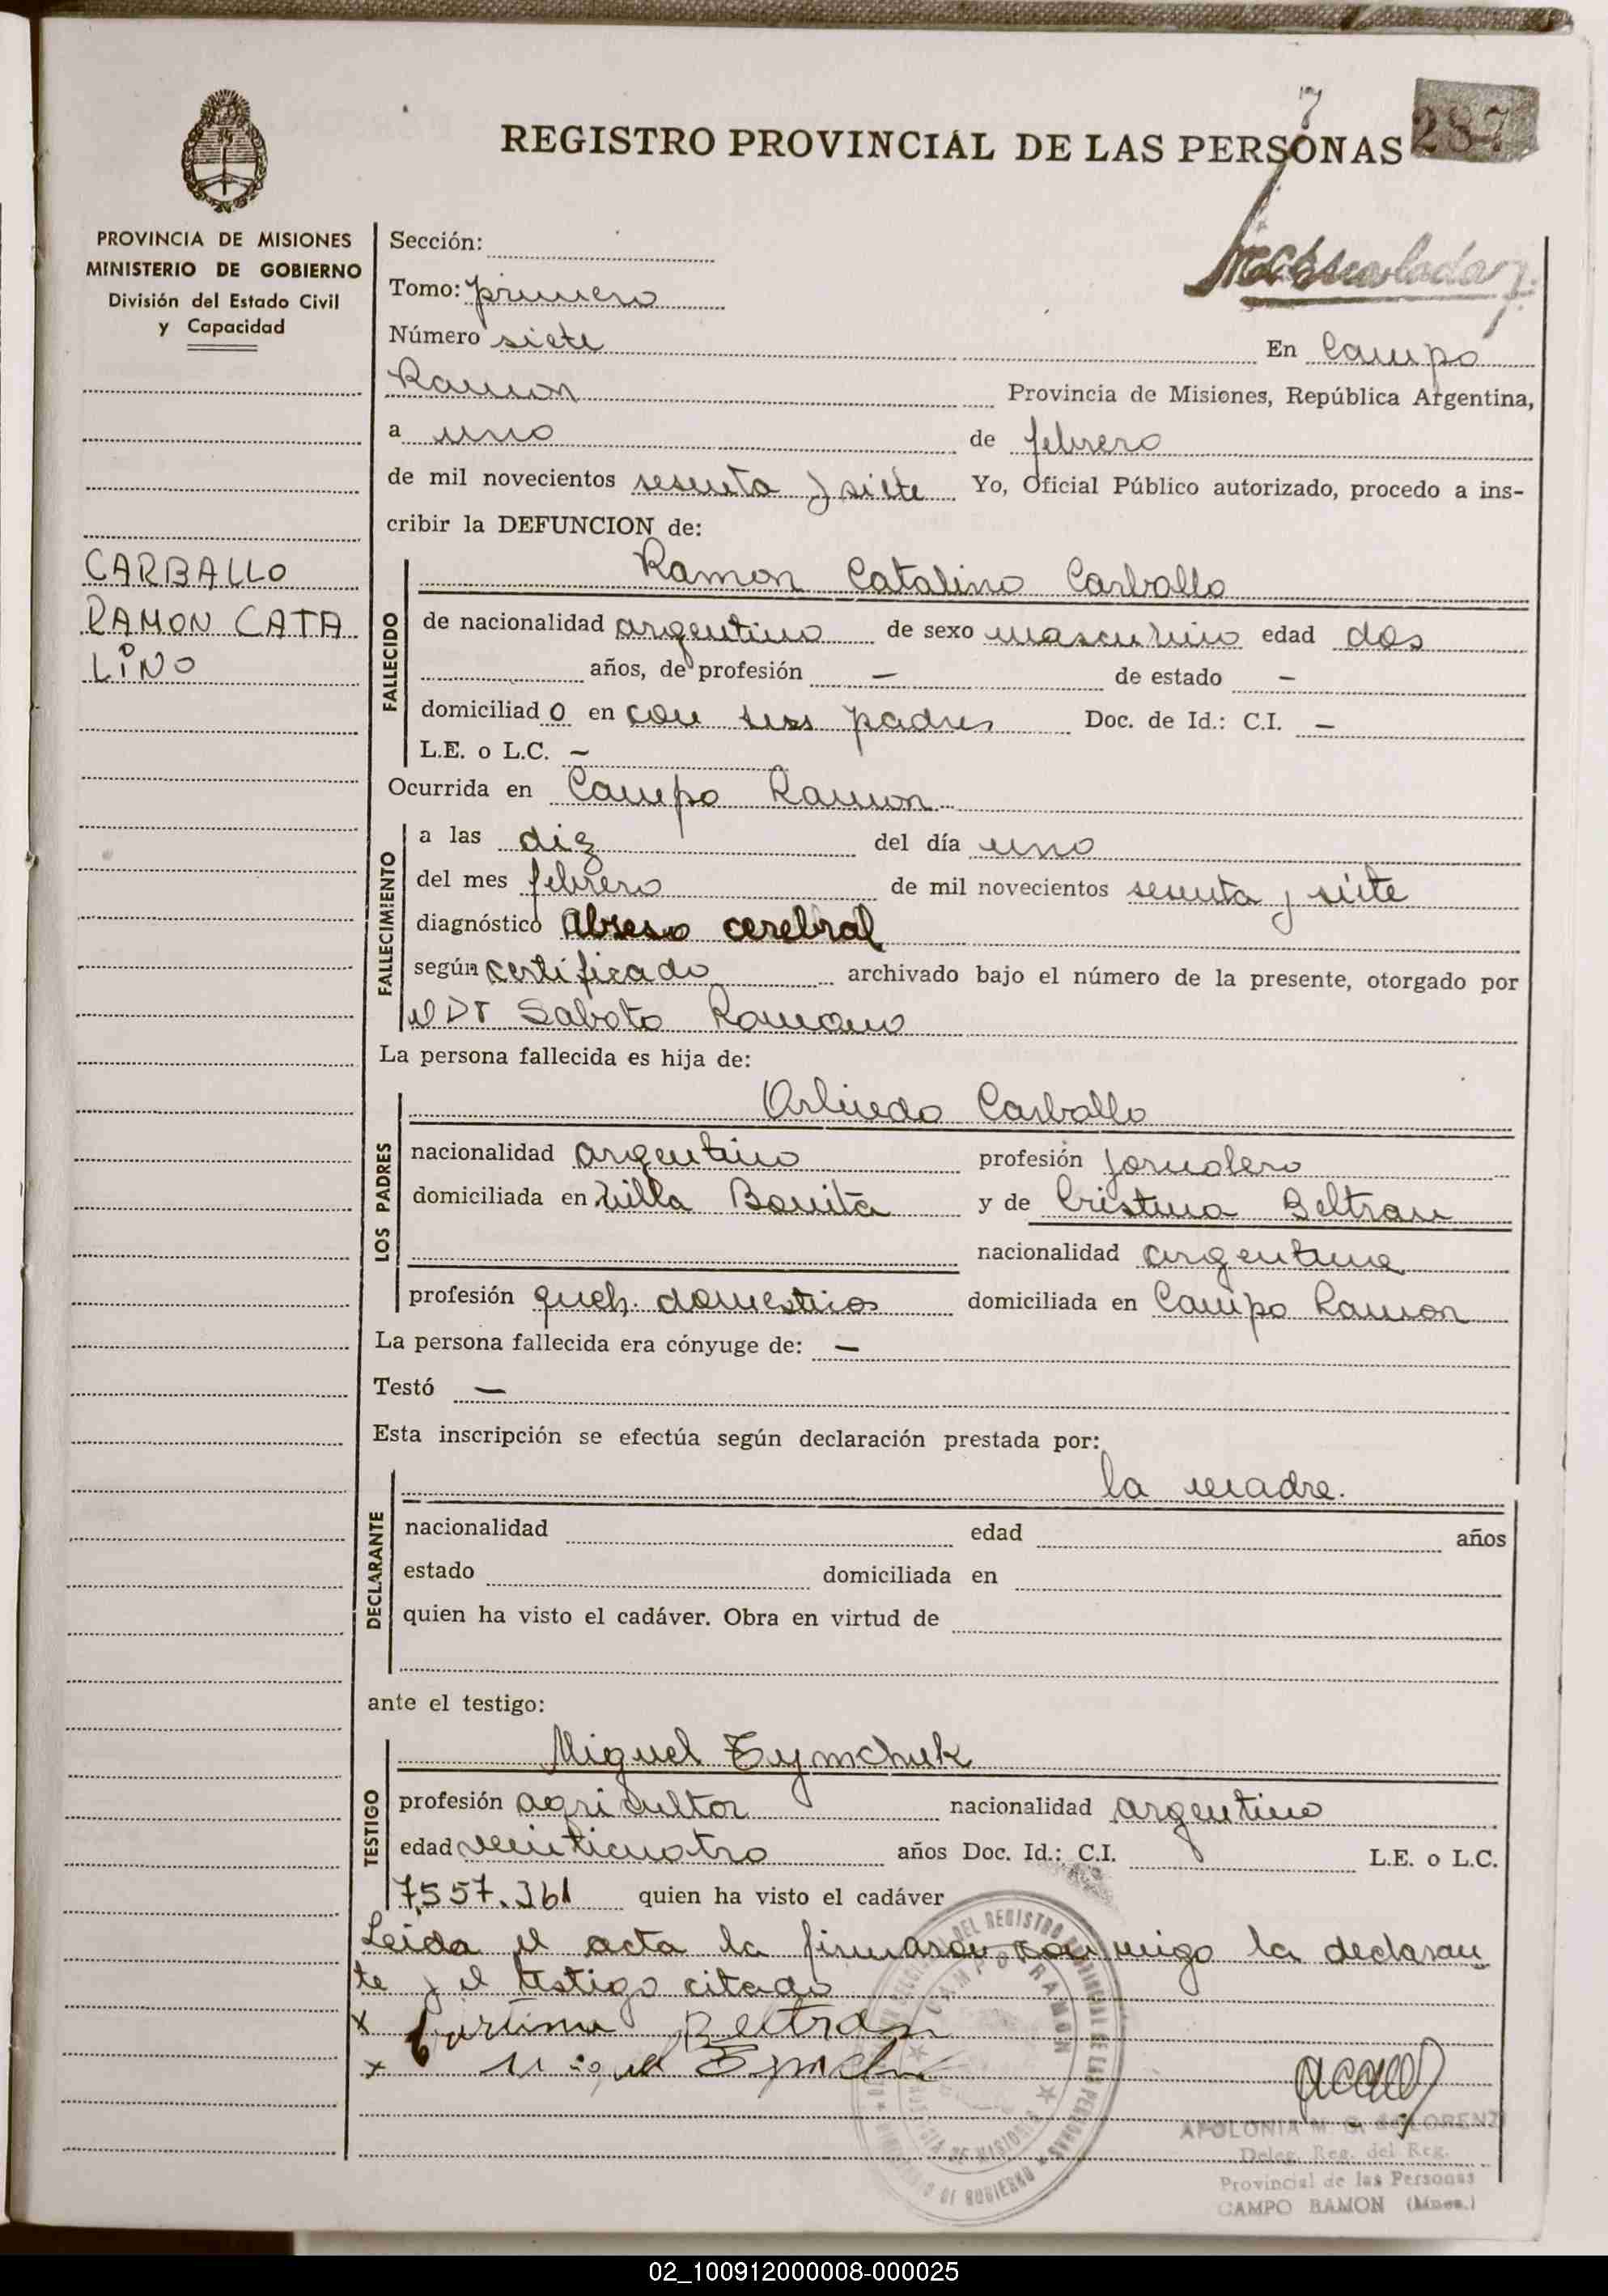 7
287
REGISTRO PROVINCIAL DE LAS PERSONAS
PROVINCIA DE MISIONES
MINISTERIO DE GOBIERNO
División del Estado Civil
y Capacidad
CARBALLO
RAMON CATA
LINO
Sección:
Tomo: primero
Número siete En Campo
Ramon Provincia de Misiones, República Argentina,
a uno de febrero
de mil novecientos sesenta y siete Yo, Oficial Público autorizado, procedo a ins-
cribir la DEFUNCION de:
FALLECIDO
Ramon Catalino Carballo
de nacionalidad argentino de sexo masculino edad dos
años, de profesión — de estado —
domiciliado en con sus padres Doc. de Id.: C.I. —
L.E. o L.C. —
Ocurrida en Campo Ramon
FALLECIMIENTO
a las diez del día uno
del mes febrero de mil novecientos sesenta y siete
diagnóstico Abseso cerebral
según certificado archivado bajo el número de la presente, otorgado por
el Dr Saboto Romano
La persona fallecida es hija de:
LOS PADRES
Orlindo Carballo
nacionalidad argentino profesión jornalero
domiciliada en Villa Bonita y de Cristina Beltran
nacionalidad argentina
profesión queh. domesticos domiciliada en Campo Ramon
La persona fallecida era cónyuge de: —
Testó —
Esta inscripción se efectúa según declaración prestada por:
DECLARANTE
la madre.
nacionalidad edad años
estado domiciliada en
quien ha visto el cadáver. Obra en virtud de
ante el testigo:
TESTIGO
Miguel Tymchuk
profesión agricultor nacionalidad argentino
edad veinticuatro años Doc. Id.: C.I. L.E. o L.C.
7.557.361 quien ha visto el cadáver
Leida el acta la firmaron conmigo la declaran
te y el testigo citado
x Cristina Beltran
x Miguel
CAMPO RAMON
APOLONIA M. G. de LORENZI
Deleg. Reg. del Reg.
Provincial de las Personas
CAMPO RAMON (Mnes.)
02_100912000008-000025